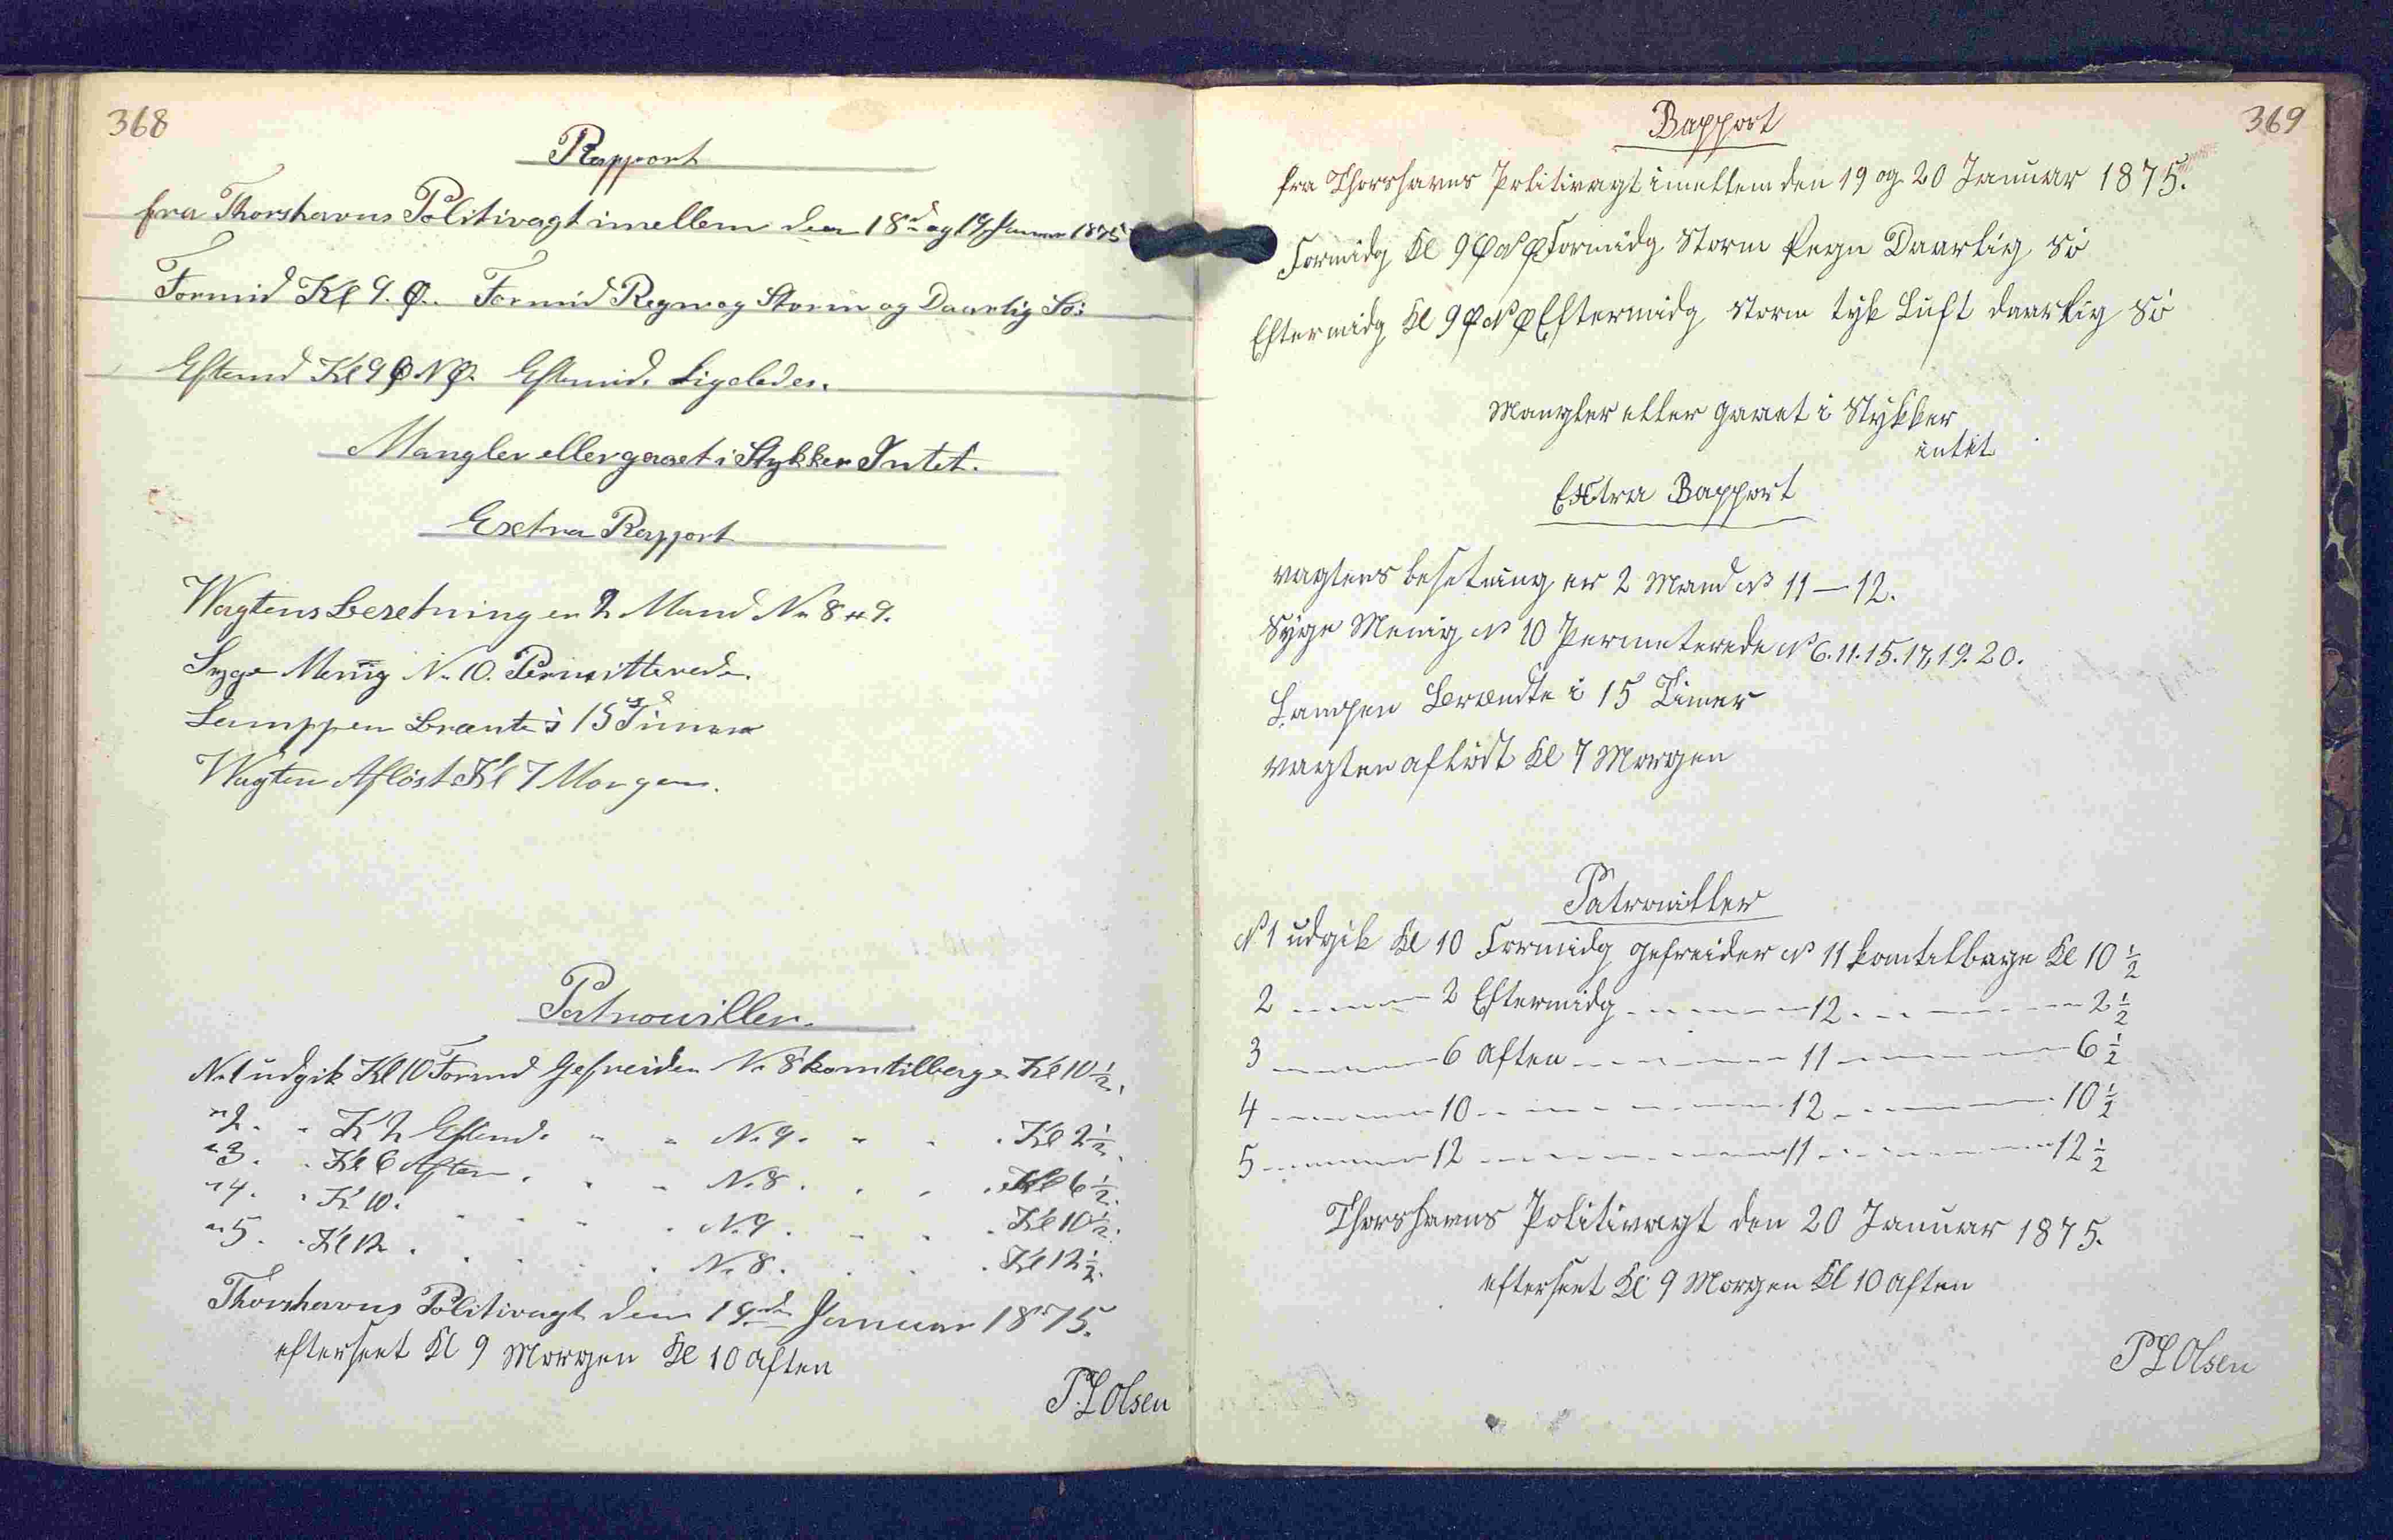 368
Rapport
fra Thorshavns Politivagt imellem den 18d og 19 Januar 1875
Formid Kl 9. Ø.. Formid Regn og Storm og Daarlig Sö:
Eftemd Kl 9 Ø N Ø. Eftemid. Ligeledes.
Mangler eller gaaet i Stykker Intet.
Exetra Rapport
Wagtens Besetning er 2 Mand No 8 " 9.
Syge Menig No 10. Permitterede.
Lamppen Brænte i 15 Timer
Wagten Aflöst Kl 7 Morgen.
Patrouiller.
No 1 udgik Kl 10 Formd Gefreider No 8 kom tilbage Kl 10 ½.
" 2. " Kl 2 Eftemd. " " No 9. " " . Kl 2 ½.
" 3. . Kl 6 Aften . . " No 8 . . . . Kl 6 ½.
" 4. . Kl 10. " " " . No 9 . . . . Kl 10 ½.
" 5. . Kl 12 . . . . . No 8 . . . . Kl 12 ½.
Thorshavns Politivagt den 19de Januar 1875.
efterseet Kl 9 Morgen Kl 10 Aften
P.L Olsen
369
Rapport
fra Thorshavns Politivagt imellem den 19 og 20 Januar 1875.
Formidg Kl 9 Ø N Ø Formidg Storm Regn Daarlig Sö
Eftermidg Kl 9 Ø N Ø Eftermidg Storm tyk Luft daarlig Sö
Mangler eller gaaet i Stykker
intet
Extra Rapport
vagtens besetning er 2 Mand No 11 — 12.
Syge Menig No 10 Permeterede No 6. 11. 15. 17, 19. 20.
Lampen Brændte i 15 Timer
vagten aflödt Kl 7 Morgen
Patrouiller
No 1 udgik Kl 10 Formidg gefreider No 11 kom tilbage Kl 10 ½
2 ------ 2 Eftermidg ------ 12 ------ 2 ½
3 ------ 6 Aften ------ 11 ------ 6 ½
4 ------ 10 ------ 12 ------ 10 ½
5 ------ 12 ------ 11 ------ 12 ½
Thorshavns Politivagt den 20 Januar 1875.
efterseet Kl 9 Morgen Kl 10 Aften
P L Olsen